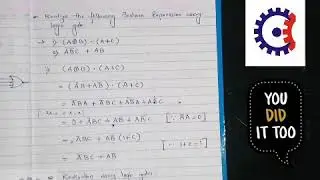 * Realize the following Boolean Expression using
logic gates
→ i) (A⊕B) · (A+C)
ii) A̅BC + AB̅
i) (A⊕B) · (A+C)
= (A̅B+AB̅) · (A+C)
= A̅BA + A̅BC + AB̅A + AB̅C
= 0 + A̅BC + AB̅ + AB̅C [∵ A̅A = 0]
= A̅BC + AB̅ (1+C)
= A̅BC + AB̅ [∵ 1+C = 1]
using logic gates
YOU
DID
IT TOO